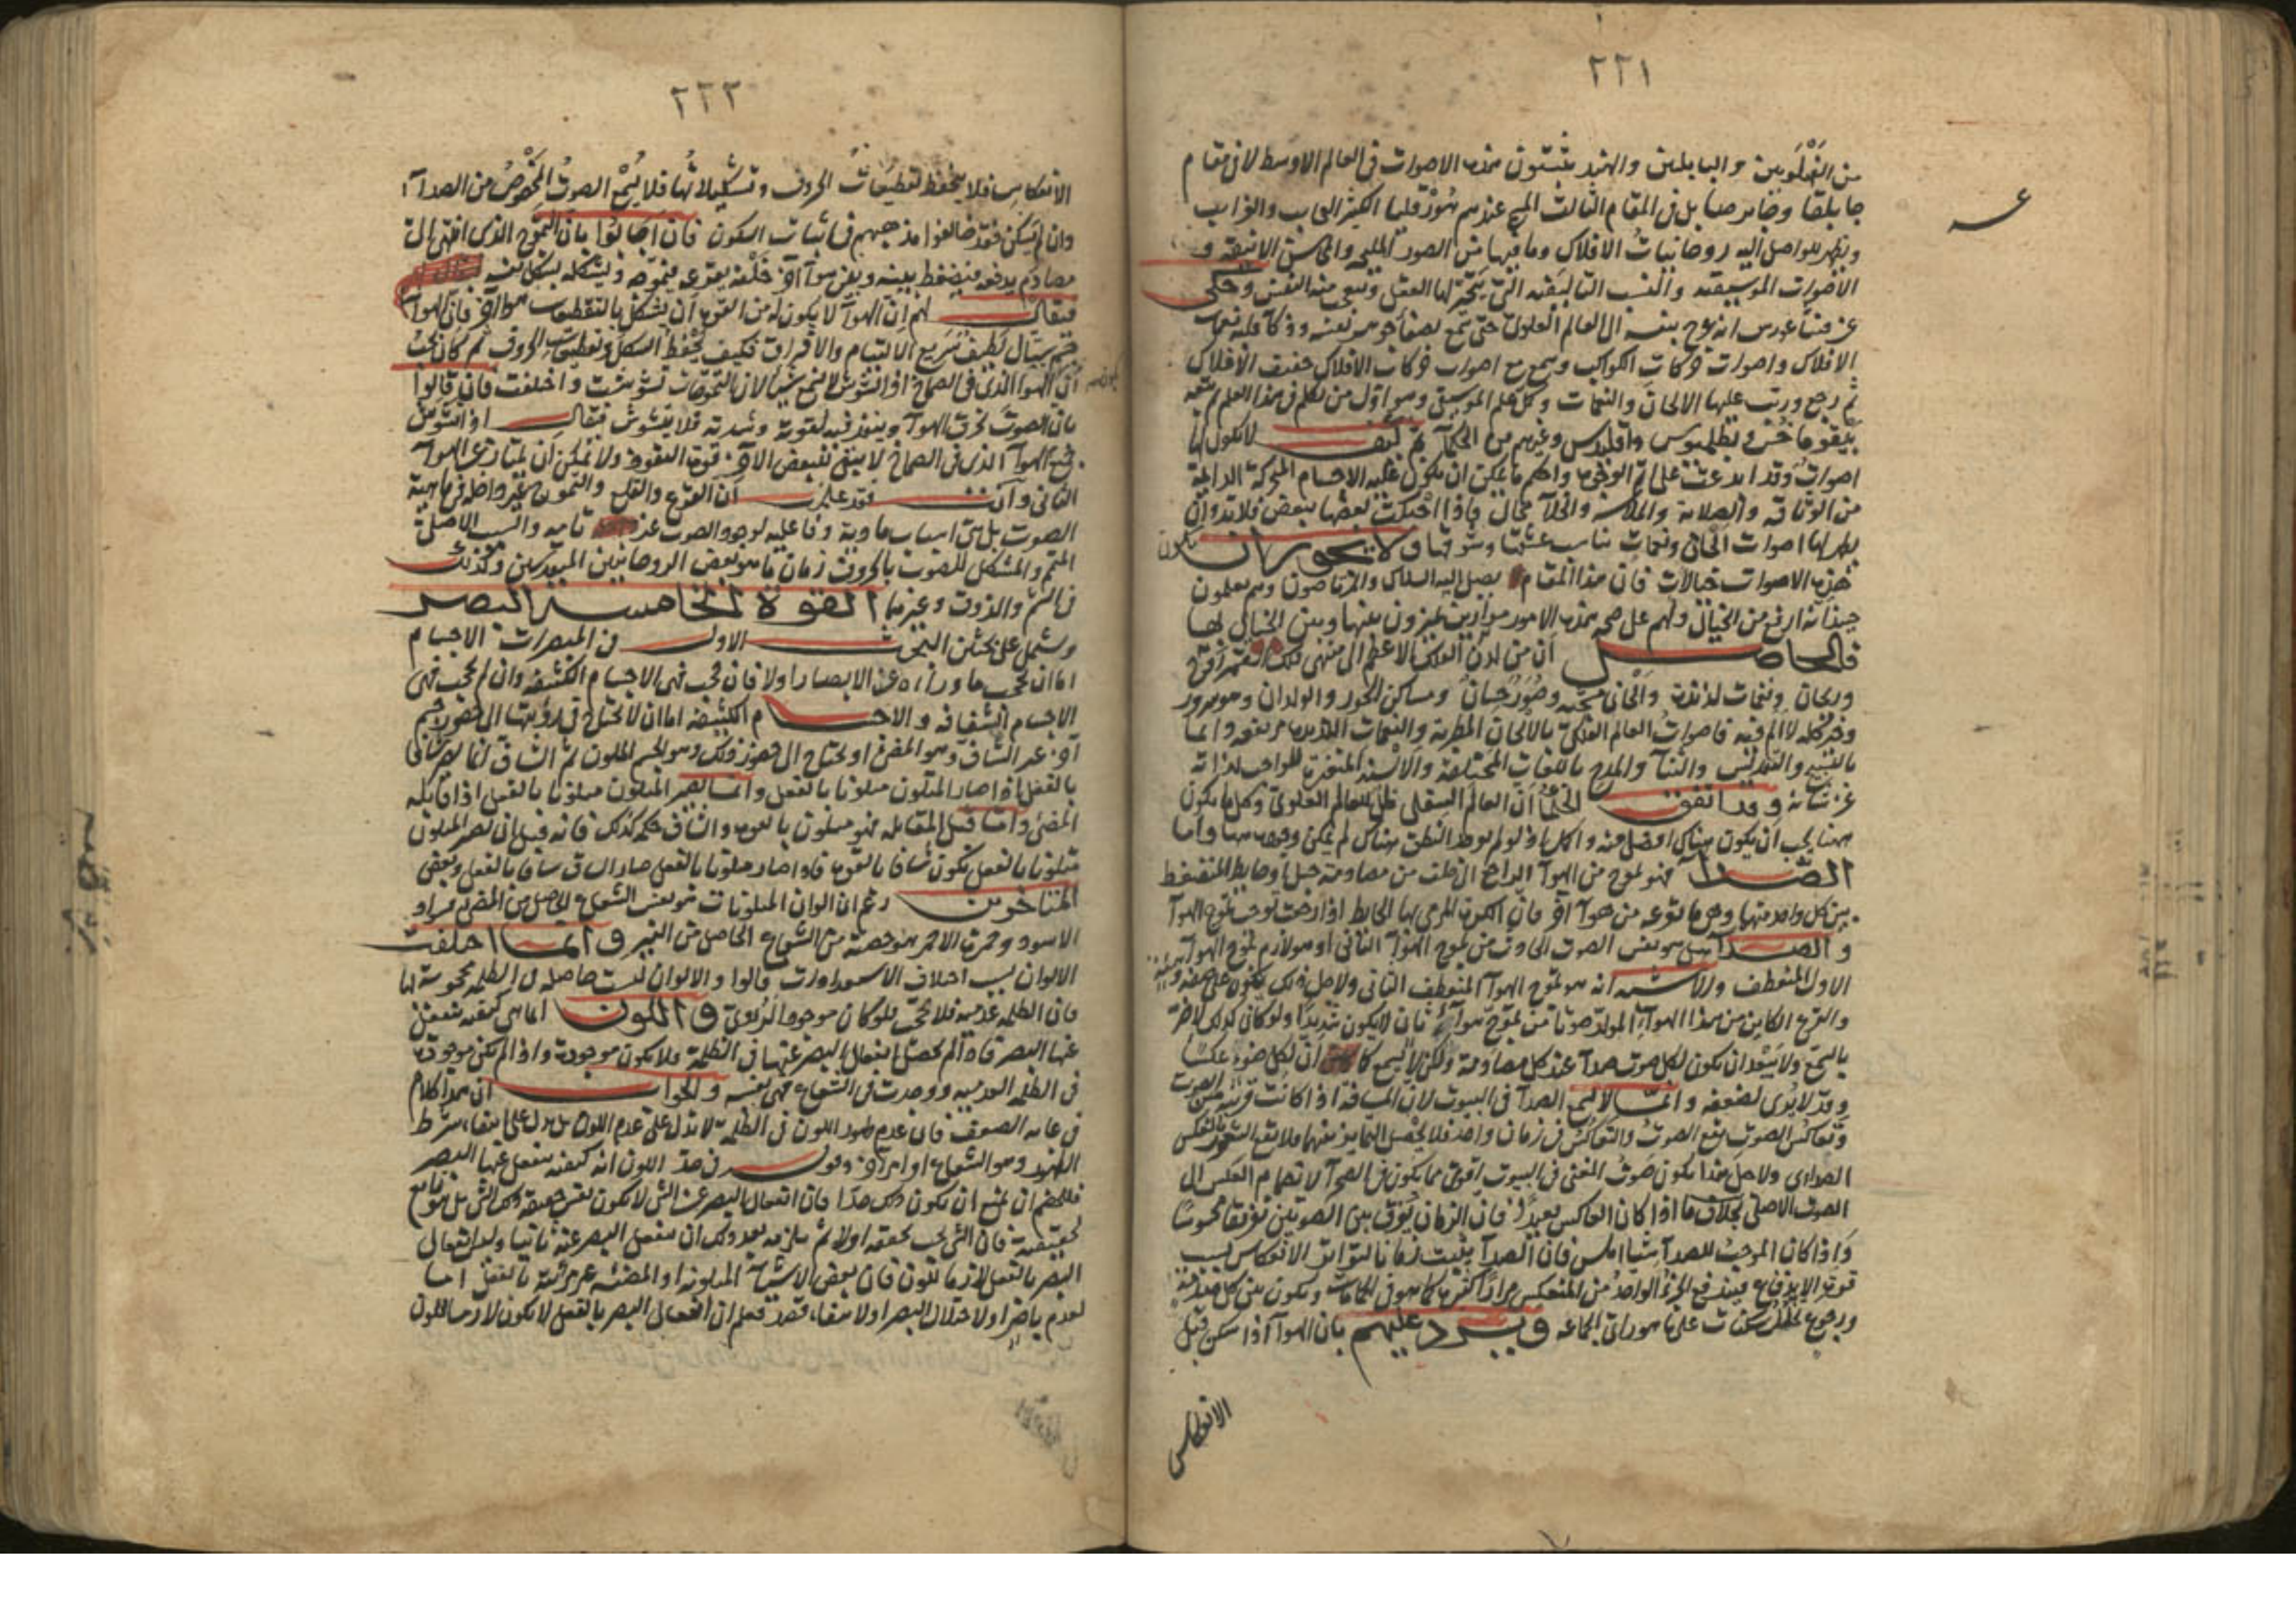 ٢٢١
من العلويين والبابليين والهند يثبتون هذه الاصوات فى العالم الاوسط لا فى مقام
جابلقا وجابرصا بل فى المقام الثالث المسمى عندهم بهورقليا الكثير العجايب والغرايب
ويظهر للواصل اليه روحانيات الافلاك وما فيها من الصور المليحه والمحاسن الانيقه و
الاصوات الموسيقيه والنسب التاليفيه التى يتحير لها العقل ويتعجب منه النفس وحكى
عن فيثاغورس انه عرج بنفسه الى العالم العلوى حتى سمع بصفا جوهر نفسه وذكا قلبه نغمات
الافلاك واصوات حركات الكواكب وسمع مع اصوات حركات الافلاك حفيف الافلاك
ثم رجع ورتب عليها الالحان والنغمات وكمل علم الموسيقى وهو اول من تكلم فى هذا العلم ثم تبعه
نيقوماخس وبطلميوس واقليدس وغيرهم من الحكمآ ثم كيف لا يكون لها
اصوات وقد ابدعت على اتم الوجوه واحكم ما يمكن ان يكون عليه الاجسام المتحركة الدايمة
من الوثاقه والصلابة والملاسة والخلآ محال فاذا احتكت بعضها ببعض فلا بد وان
يظهر لها اصوات الحان ونغمات تناسب عشقها وشوقها ولا يجوز ان يكون
هذه الاصوات خيالات فان هذا المقام يصل اليه السلاك والمرتاضون وهم يعلمون
حينئذ انه ارفع من الخيال ولهم على صحة هذه الامور موازين يميزون بينها وبين الخيالى لها
فالحاصل ان من لدن الفلك الاعظم الى منتهى فلك القمر روح
وريحان ونغمات لذيذة والحان مبهجة وصور حسان ومساكن الحور والولدان وهو سرور
وخير كله لا الم فيه فاصوات العالم الفلكى بالالحان المطربة والنغمات اللذيذة مرتفعه دائما
بالتسبيح والتقديس والثنآ والمدح باللغات المختلفة والالسنة المتغيرة للواجب لذاته
عز شانه وقد اتفقت الحكمآ ان العالم السفلى ظل للعالم العلوى وكل ما يكون
ههنا يجب ان يكون هناك افضل منه واكمل اذ لو لم يوجد النطق هناك لم يمكن وجوده ههنا واما
الصدا فهو تموج من الهوآ الراجع الى خلف من مصادمة جبل او حايط المنضغط
بين كل واحد منهما وبين ما يقرعه من هوآ آخر فان الكرة المرمى بها الحايط اذا رجعت توجب تموج الهوآ
والصدآ ليس هو نفس الصوت الحادث من تموج الهوآ الثانى او هو لازم تموج الهوآ
الاول المنعطف والاشبه انه هو تموج الهوآ المنعطف الثانى ولاجل ذلك يكون على صفته وهيئته
والقرع الكاين من هذا الهوآ المولد صوتا من تموج هوآ ثان لا يكون شديدا ولو كان كذلك لاضر
بالسمع ولا يبعد ان يكون لكل صوت صدآ عند كل مصادمة ولكن لا يسمع كما ان لكل ضوء عكسا
وقد لا يرى لضعفه وانما لا يسمع الصدآ فى البيوت لان المسافة اذا كانت قريبة من الصوت
وتعاكس الصوت يقع الصوت والتعاكس فى زمان واحد فلا يحصل التمايز بينهما فلا يقع الشعور بالعكس
الصدائى ولاجل هذا يكون صوت المغنى فى البيوت اقوى مما يكون فى الصحرآ لانضمام العكس الى
الصوت الاصلى بخلاف ما اذا كان العاكس بعيدا فان الزمان يفرق بين الصوتين تفريقا محسوسا
واذا كان الموجب للصدآ شيا املس فان الصدآ يثبت زمانا لتواتر الانعكاس بسبب
قوة الاندفاع فيندفع الجزء الواحد من المنعكس مرارا كثيرة كما هو فى الحمامات ويكون بين كل
ورجوع تخلل سكنات على ما هو راى الجماعه ويرد عليهم بان الهوآ اذا سكن قبل
الانعكاس
٢٢٢
الانعكاس فلا يحفظ تقطيعات الحروف وتشكيلاتها فلا يسمع الصوت المخصوص من الصدآ
وان لم يسكن فقد خالفوا مذهبهم فى اثبات السكون فان اجابوا بان التموج الذى انتهى الى
مصادم يدفعه فينضغط بينه وبين هوآ آخر خلفه يقرعه فيموجه ويشكله بشكل نفسه
فيقال لهم ان الهوآ لا يكون له من القوة ان يشكل بالتقطيعات هوآ آخر فان الهوآ
جسم سيال لطيف سريع الالتيام والافتراق فكيف يحفظ الشكل وتقطيعات الحروف ثم كان يجب
ان الهوآ الذى فى الصماخ اذا تشوش لا يسمع شيا لان التموجات تشوشت واختلفت فان قالوا
بان الصوت يخرق الهوآ وينفذ فيه لقوته وشدته فلا يتشوش فيقال اذا تشوش
جميع الهوآ الذى فى الصماخ لا يبقى للبعض الآخر قوة النفوذ ولا يمكن ان يمتاز عن الهوآ
الثانى وانت فقد علمت ان القرع والقلع والتموج غير داخلة فى ماهية
الصوت بل هى اسباب مادية وفاعلية لوجود الصوت عند تاثيره والسبب الاصلى
المتمم والمشكل للصوت بالحروف زمان ما هو بعض الروحانيين المتقدسين وكذلك
فى الشم والذوق وغيرهما القوة الخامسة البصر
ويشتمل على بحثين البحث الاول فى المبصرات الاجسام
اما ان تحجب ما ورآه عن الابصار اولا فان حجب فهى الاجسام الكثيفه وان لم تحجب فهى
الاجسام الشفافه والاجسام الكثيفه اما ان لا تحتاج فى رؤيتها الى حضور جسم
آخر غير الشاف وهو المضئ او يحتاج الى حضور ذلك وهو الجسم الملون ثم الشاف انما يصير شافا
بالفعل اذا صار المتلون متلونا بالفعل وانما يصير المتلون متلونا بالفعل اذا قابله
المضئ واما قبل المقابله فهو متلون بالقوة والشاف حكمه كذلك فانه قبل ان يصير المتلون
متلونا بالفعل يكون شافا بالقوة فاذا صار متلونا بالفعل صار الشاف شافا بالفعل وبعض
المتاخرين زعم ان الوان المتلونات هو نفس الشعاع الحاصل من المضئ فسواد
الاسود وحمرة الاحمر هو حصته من الشعاع الحاصل من النير وانما اختلفت
الالوان بسبب اختلاف الاستعدادات قالوا والالوان ليست حاصله فى الظلمه محجوبة لها
فان الظلمه عدميه فلا تحجب فلو كان موجودا لرؤى واللون انما هى كيفيه تنفعل
عنها البصر فاذا لم يحصل انفعال البصر عنها فى الظلمة فلا يكون موجودة واذا لم تكن موجودة
فى الظلمه العدميه ووجدت فى الشعاع فهى نفسه والجواب ان هذا كلام
فى غاية الضعف فان عدم ظهور اللون فى الظلمة لا تدل على عدم اللون بل يدل على انتفا شرط
الظهور وهو الشعاع او امر آخر وقولهم فى حد اللون انه كيفيه تنفعل عنها البصر
فللخصم ان يمنع ان يكون ذلك حدا فان انفعال البصر عن الشى لا يكون نفس حقيقة ذلك الشى بل هو تابع
لحقيقته فان الشى يجب تحققه اولا ثم يلزمه بعد ذلك ان ينفعل البصر عنه ثانيا وليس انفعال
البصر بالفعل لازما للون فان بعض الاشيآ المتلونة او المضئيه غير مرئية بالفعل اما
لعدم باصر او لاختلال البصر او لانتفا قصد فعلم ان انفعال البصر بالفعل لا يكون لازما للون